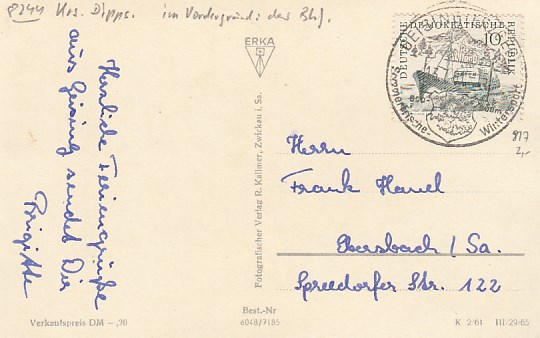 8244 Krs. Dipps. im Vordergrund: der Bhf.
Herzliche Feriengrüße
aus Geising sendet Dir
Brigitte
ERKA
DEUTSCHE DEMOKRATISCHE REPUBLIK
10
Sommerfrische - Wintersport
817
2,-
Herrn
Frank Hanel
Ebersbach / Sa.
Spreedorfer Str. 122
Fotografischer Verlag R. Kallmer, Zwickau i. Sa.
Verkaufspreis DM -,20
Best.-Nr
6048/7185
K 2/61 III/29/65